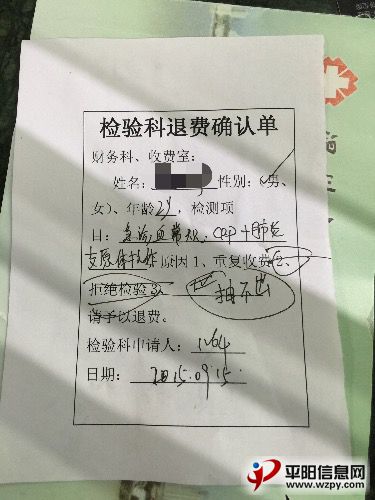 检验科退费确认单
财务科、收费室:
姓名: 性别:(男、
女)、年龄2岁,检测项
目:急诊血常规、CRP+肺炎
支原体抗体 原因1、重复收费2、
拒绝检验3、 抽不出
请予以退费。
检验科申请人:1264
日期:2015.09.15.
平阳信息网
www.wzpy.com